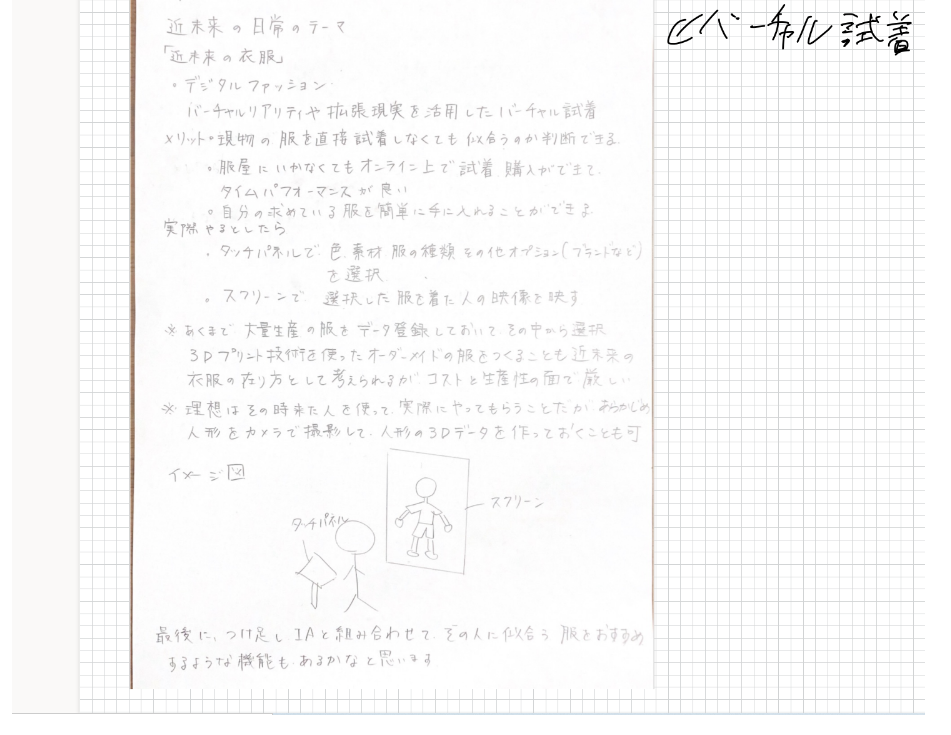 近未来の日常のテーマ
「近未来の衣服」
・デジタルファッション
バーチャルリアリティや拡張現実を活用したバーチャル試着
メリット・現物の服を直接試着しなくても似合うのか判断できる
・服屋にいかなくてもオンライン上で試着、購入ができて、
タイムパフォーマンスが良い
・自分の求めている服を簡単に手に入れることができる
実際やるとしたら
・タッチパネルで色、素材、服の種類、その他オプション(ブランドなど)
を選択
・スクリーンで選択した服を着た人の映像を映す
※あくまで大量生産の服をデータ登録しておいて、その中から選択
3Dプリント技術を使ったオーダーメイドの服をつくることも近未来の
衣服の在り方として考えられるが、コストと生産性の面で厳しい
※理想はその時来た人を使って、実際にやってもらうことだが、あらかじめ
人形をカメラで撮影して、人形の3Dデータを作っておくことも可
イメージ図
タッチパネル
スクリーン
最後に、つけ足し、IAと組み合わせて、その人に似合う服をおすすめ
するような機能も、あるかなと思います
バーチャル試着